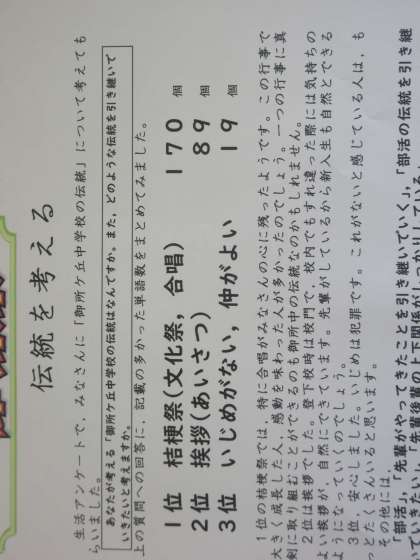 伝統を考える
生活アンケートで、みなさんに「御所ケ丘中学校の伝統」について考えても
らいました。
あなたが考える「御所ケ丘中学校の伝統はなんですか。また、どのような伝統を引き継いで
いきたいと考えますか。
上の質問への回答に、記載の多かった単語数をまとめてみました。
1位 桔梗祭(文化祭，合唱) 170個
2位 挨拶(あいさつ) 89個
3位 いじめがない，仲がよい 19個
1位の桔梗祭では、特に合唱がみなさんの心に残ったようです。この行事で
大きく成長した人、感動を味わった人が多かったのでしょう。一つの行事に真
剣に取り組むことができるのも御所中の伝統なのかもしれません。
2位は挨拶でした。登下校時は校門で、校内でもすれ違った際には気持ちの
い挨拶が、自然にできています。先輩がしているから新入生も自然とできる
ようになっていくのでしょう。
3位、安心しました。いじめは犯罪です。これがないと感じている人は、も
とたくさんいると思います。
その他には、
「部活」，「先輩がやってきたことを引き継いでいく」，「部活の伝統を引き継
いでいきたい」，「先輩後輩の上下関係がしっかりしている